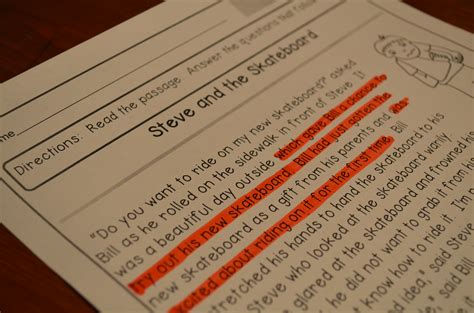 Name
Directions: Read the passage. Answer the questions that follow.
Steve and the Skateboard
"Do you want to ride on my new skateboard?" asked
Bill as he rolled on the sidewalk in front of Steve. It
was a beautiful day outside which gave Bill a chance to
try out his new skateboard. Bill had just gotten the
new skateboard as a gift from his parents and was
excited about riding on it for the first time. Bill
stretched his hands to hand the skateboard to his
Steve who looked at the skateboard warily
glared at the skateboard and frowned
he did not want to grab it from
know how to ride it. I'm
idea," said Steve
said